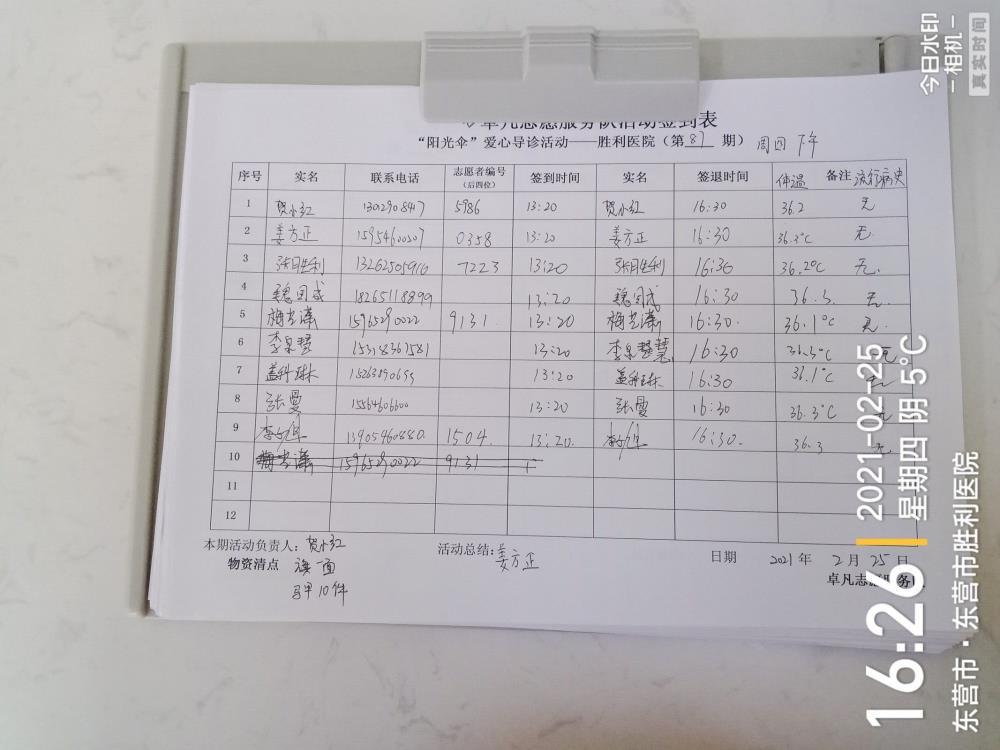 卓凡志愿服务队活动签到表
“阳光伞”爱心导诊活动——胜利医院（第87期） 周四下午
序号 实名 联系电话 志愿者编号（后四位） 签到时间 实名 签退时间 体温 备注 流行病史
1 贺小红 5986 13:20 贺小红 16:30 36.2 无
2 姜方正 15954600507 0358 13:20 姜方正 16:30 36.3°C 无.
3 13262505916 7223 13:20 16:30 36.2°C 无.
4 魏国成 18265118899 13:20 魏国成 16:30 36.3. 无.
5 梅 15965290022 9131 13:20 梅 16:30. 36.1°C 无.
6 李 慧 15318361581 13:20 李 慧 16:30 36.3°C 无
7 盖科琳 15263890699 13:20 盖科琳 16:30 36.1°C 无
8 张曼 15564606600 13:20 张曼 16:30 36.3°C 无
9 13905460880. 1504. 13:20. 16:30. 36.3 无
10 梅 15965290022 9131
11
12
本期活动负责人：贺小红 活动总结：姜方正 日期 2021年 2月 25日
物资清点 旗一面 卓凡志愿服务队
马甲10件
今日水印
相机
真实时间
16:26
2021-02-25
星期四 阴 5°C
东营市·东营市胜利医院